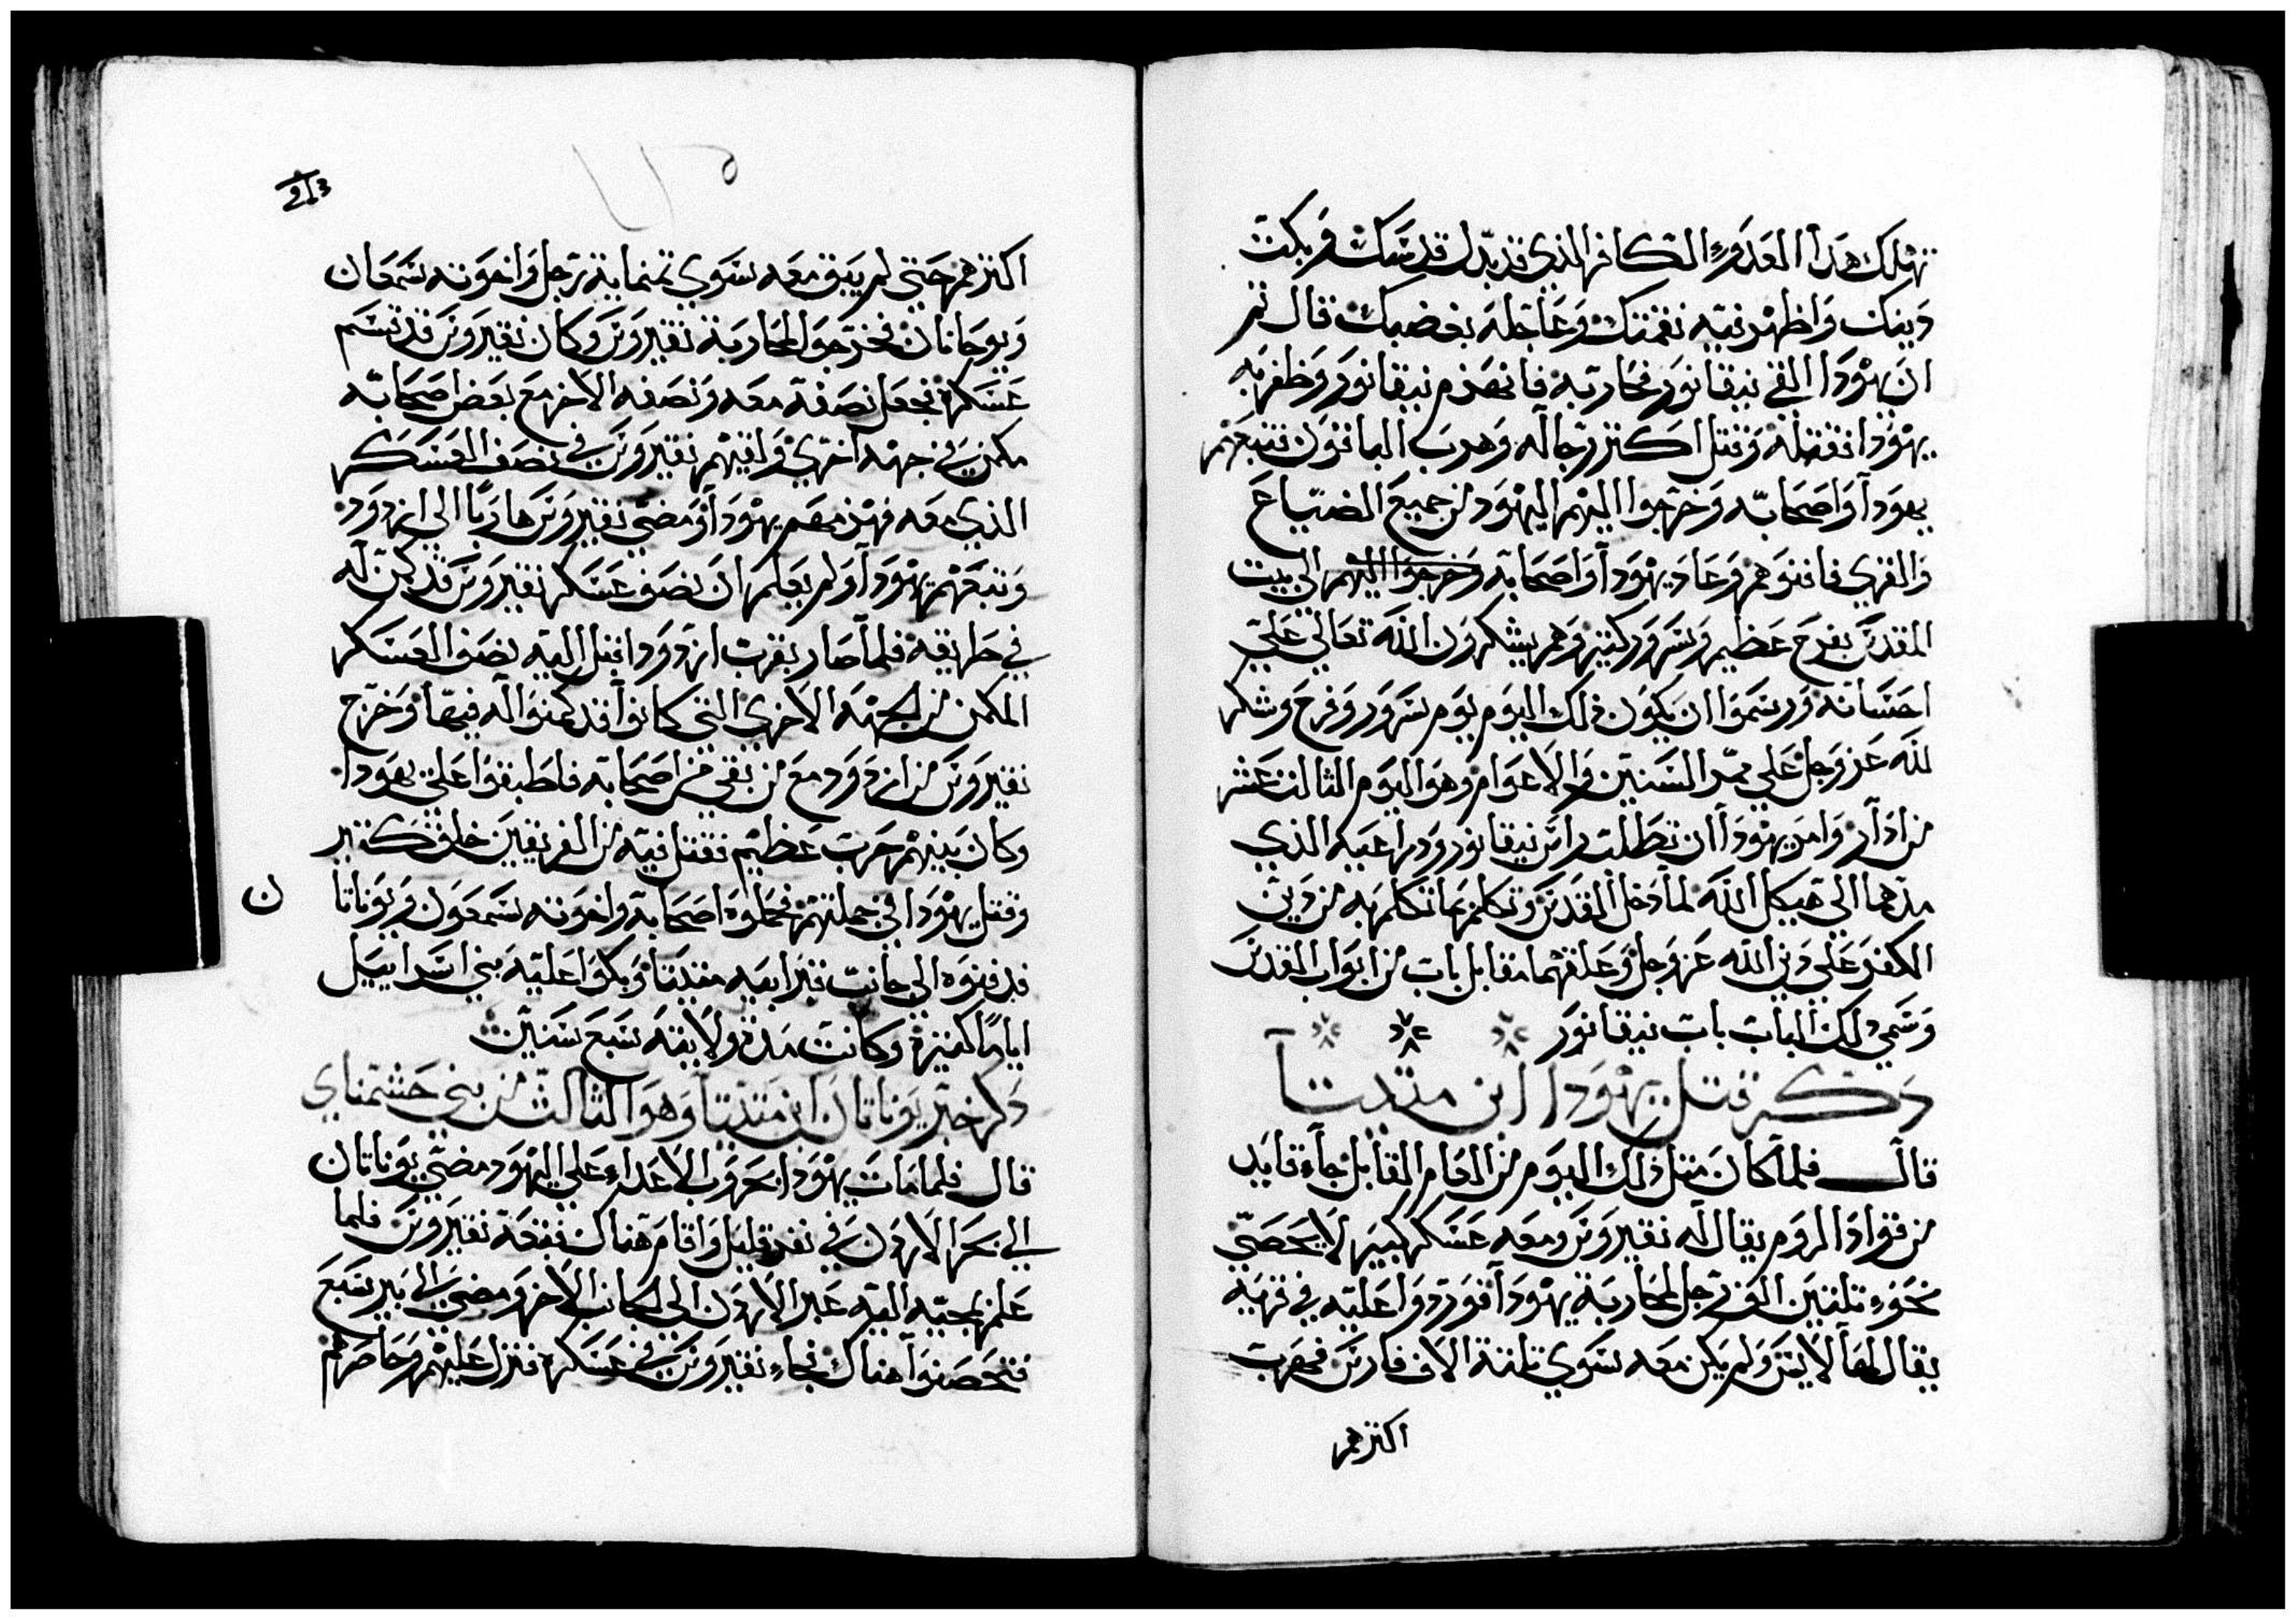 تهلك هدا العدو الكافر الذي قد بدل قدسك وبكت
دينك واظهر فيه نقمتك وعاجله بغضبك قال ثم
ان يهودا القي نيقانور فحاربه فانهزم نيقانور وظفر به
يهودا فقتله وقتل اكتر رجاله وهرب الباقون فتبعهم
يهودا واصحابه وخرجوا اليهم اليهود من جميع الضياع
والقري فافنوهم وعاد يهودا واصحابه وخرجوا اليهم الي بيت
المقدس بفرح عظيم وسرور كتير وهم يشكرون الله تعالي علي
احسانه ورسموا ان يكون دلك اليوم يوم سرور وفرح وشكر
لله عز وجل علي ممر السنين والاعوام وهو اليوم الثالث عشر
من ادار وامر يهودا ان تطلب راس نيقانور ودراعيه الذي
مدهما الي هيكل الله لما دخل القدس وتكلم بما تكلم به من دين
الكفر علي دين الله عز وجل وعلقهما مقابل باب من ابواب القدس
وسمي دلك الباب باب نيقانور
دكر قتل يهودا ابن متديتا
قال فلما كان متل ذلك اليوم من العام القابل جاء قايد
من قواد الروم يقال له نقيروس ومعه عسكر كبير لا يحصي
نحو تلتين الف رجل لمحاربة يهودا فوردوا عليه في قريه
يقال لها لايس ولم يكن معه سوي تلتة الاف فارس فهرب
اكترهم
213
اكترهم حتي لم يبق معه سوي تمنماية رجل واخوته سمعان
ويوحانان فخرجوا لمحاربة نقيروس وكان نقيروس قد قسم
عسكره فجعل نصفه معه ونصفه الاخر مع بعض اصحابه
مكمن في جهه اخري ولقيهم نقيروس في نصف العسكر
الذي معه فهزمهم يهودا ومضي نقيروس هاربا الي ازدود
وتبعهم يهودا ولم يعلم ان نصف عسكر نقيروس قد كمن له
في طريقه فلما صار بقرب ازدود اقبل اليه نصف العسكر
المكمن من الجهه الاخري التي كانوا قد كمنوا له فيها وخرج
نقيروس من ازدود مع من بقي من اصحابه فاطبقوا علي يهودا
وكان بينهم حرب عظيم فقتل فيه من الفريقين خلق كتير
وقتل يهودا في جملتهم فحملوه اصحابه واخوته سمعون ويوناتا ن
فدفنوه الي جانب قبر ابيه متيتا وبكوا عليه بني اسراييل
اياما كتيرة وكانت مدة ولايته سبع سنين
دكر خبر يوناتان ابن متديتا وهو الثالث من بني حشمناي
قال فلما مات يهودا بحروب الاعداء علي اليهود مضي يوناتان
الي بحر الاردن في نفر قليل واقام هناك فتبعه نقيروس فلما
علم بمجيه اليه عبر الاردن الي الجانب الاخر ومضي الي بير سبع
فتحصنوا هناك فجاء نقيروس في عسكره فنزل عليهم وحاصرهم